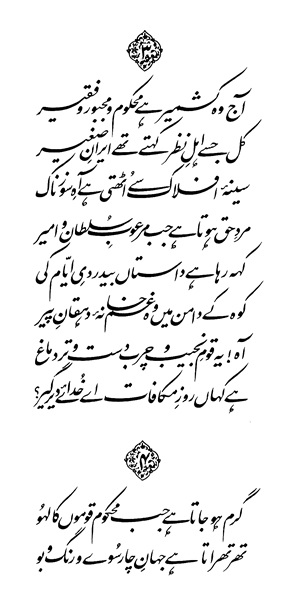 ۳
آج وہ کشمیر ہے محکوم و مجبور و فقیر
کل جسے اہلِ نظر کہتے تھے ایرانِ صغیر
سینۂ افلاک سے اُٹھتی ہے آہِ سوز ناک
مردِ حق ہوتا ہے جب مرعوبِ سُلطان و امیر
کہہ رہا ہے داستاں بیدردیِ ایّام کی
کوہ کے دامن میں وہ غم خانۂ دہقانِ پیر
آہ! یہ قومِ نجیب و چرب دست و تر دماغ
ہے کہاں روزِ مکافات اے خُدائے دیر گیر؟
۴
گرم ہو جاتا ہے جب محکوم قوموں کا لہُو
تھرتھراتا ہے جہانِ چار سُوے و رنگ و بو